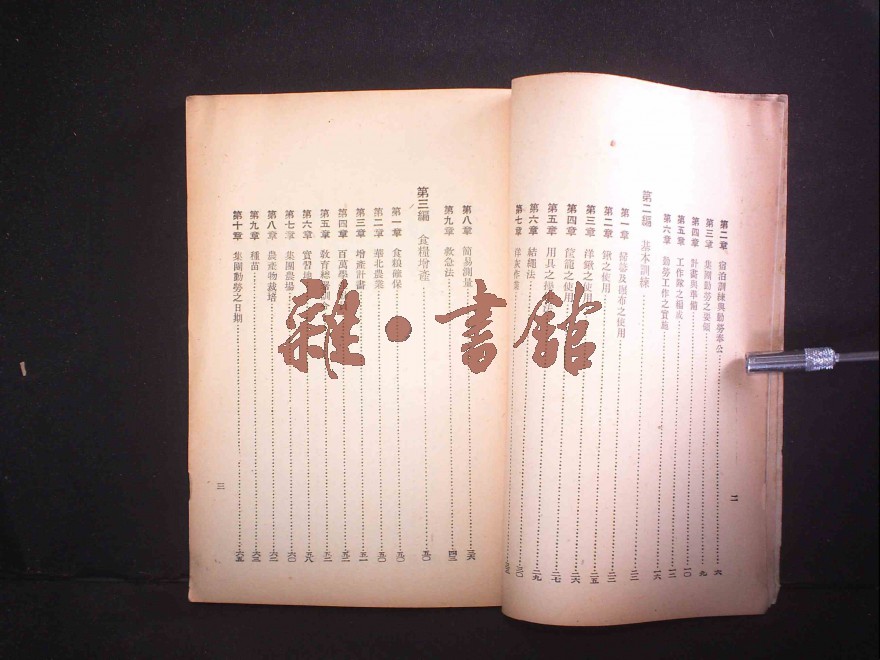 第二章 宿泊訓練與勤勞奉公 六
第三章 集團勤勞之要領 九
第四章 計畫與準備 一〇
第五章 工作隊之編成 一二
第六章 勤勞工作之實施 一六
第二編 基本訓練 二二
第一章 之使用
第二章 鍬之使用 二三
第三章 洋鍬之使用 二五
第四章 之使用 二六
第五章 用具之 二七
第六章 結繩法 二九
第七章 洋灰作業 三〇
二
第八章 簡易測量 三六
第九章 救急法 四三
第三編 食糧增產 五〇
第一章 食糧確保 五〇
第二章 華北農業 五〇
第三章 增產計畫 五一
第四章 百萬學 五二
第五章 教育總署訓 五二
第六章 實習地 五八
第七章 集團農場 六〇
第八章 農產物栽培 六二
第九章 種苗 六三
第十章 集團勤勞之日期 六五
三
雜·書館